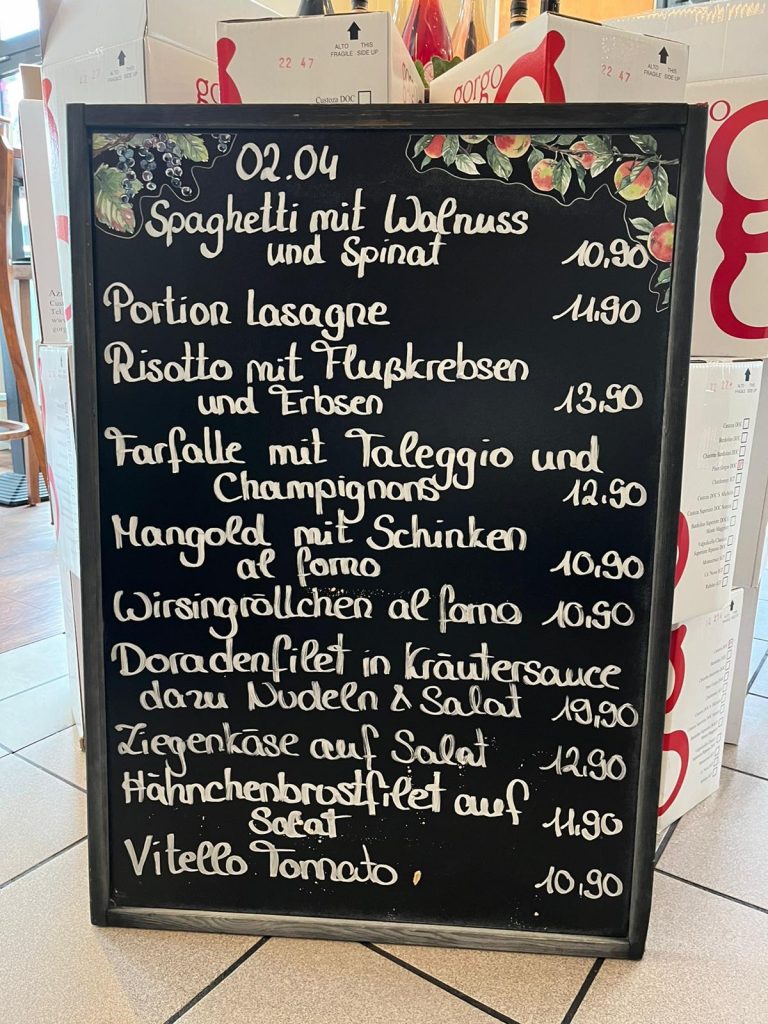 ALTO
FRAGILE
THIS
SIDE UP
22 47
Custoza DOC
gorgo
ALTO
FRAGILE
THIS
SIDE UP
22 47
02.04
Spaghetti mit Walnuss
und Spinat 10,90
Portion Lasagne 11.90
Risotto mit Flußkrebsen
und Erbsen 13,90
Farfalle mit Taleggio und
Champignons 12.90
Mangold mit Schinken
al forno 10,90
Wirsingröllchen al forno 10,90
Doradenfilet in Kräutersauce
dazu Nudeln & Salat 19,90
Ziegenkäse auf Salat 12,90
Hähnchenbrostfilet auf
Salat 11,90
Vitello Tonnato 10,90